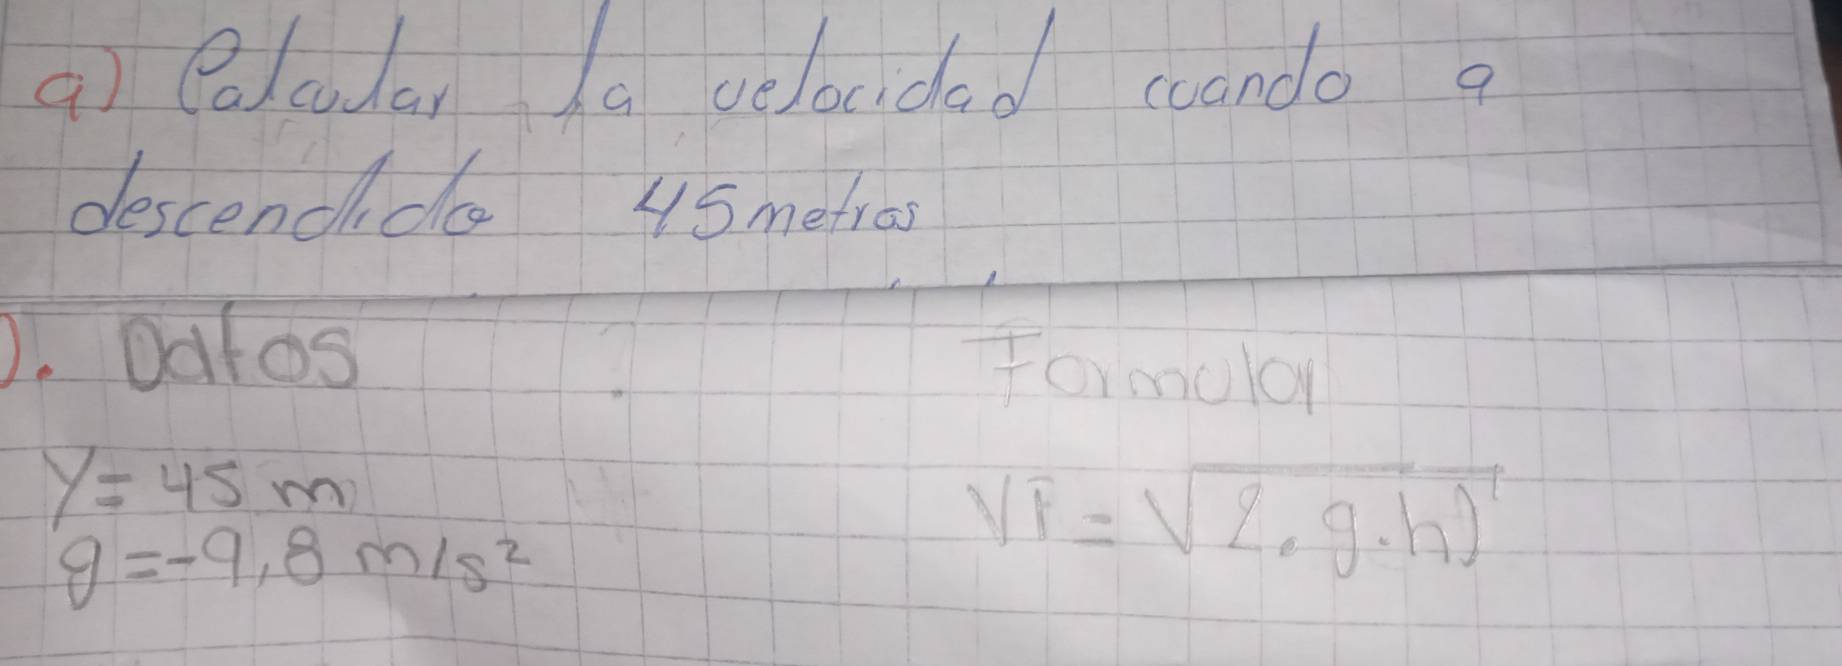 a) Calcular la velocidad cuando a
descendido 45 metros
). Datos
Formular
Y= 45 m
Vf = √2.g.h)
g=-9,8 m/s²